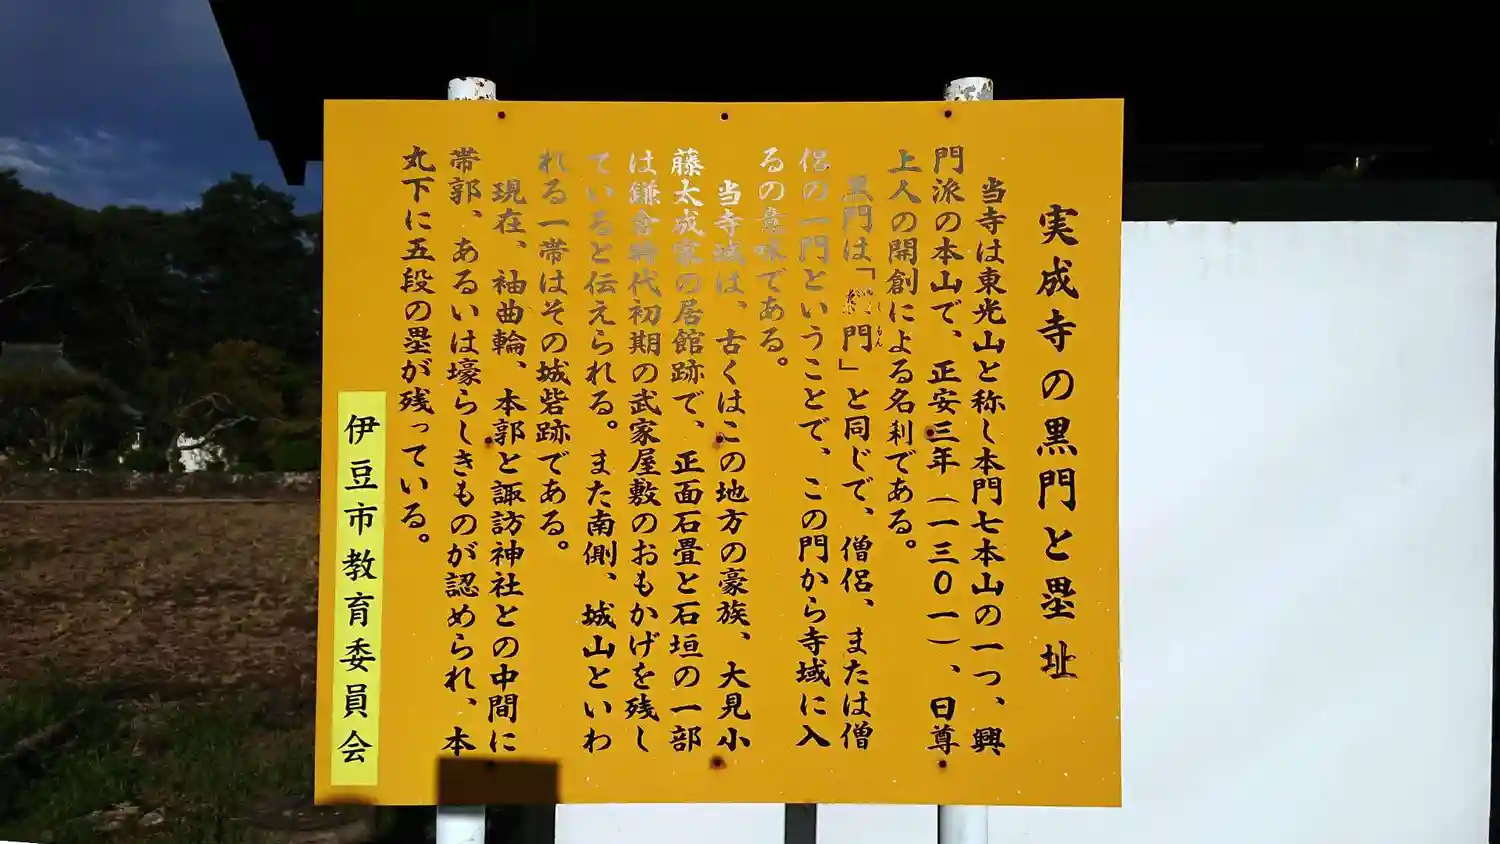 実成寺の黒門と塁址
当寺は東光山と称し本門七本山の一つ、興
門派の本山で、正安三年（一三〇一）、日尊
上人の開創による名刹である。
黒門は「門」と同じで、僧侶、または僧
侶の一門ということで、この門から寺域に入
るの意味である。
当寺域は、古くはこの地方の豪族、大見小
藤太成家の居館跡で、正面石畳と石垣の一部
は鎌倉時代初期の武家屋敷のおもかげを残し
ていると伝えられる。また南側、城山といわ
れる一帯はその城砦跡である。
現在、袖曲輪、本郭と諏訪神社との中間に
帯郭、あるいは壕らしきものが認められ、本
丸下に五段の塁が残っている。
伊豆市教育委員会